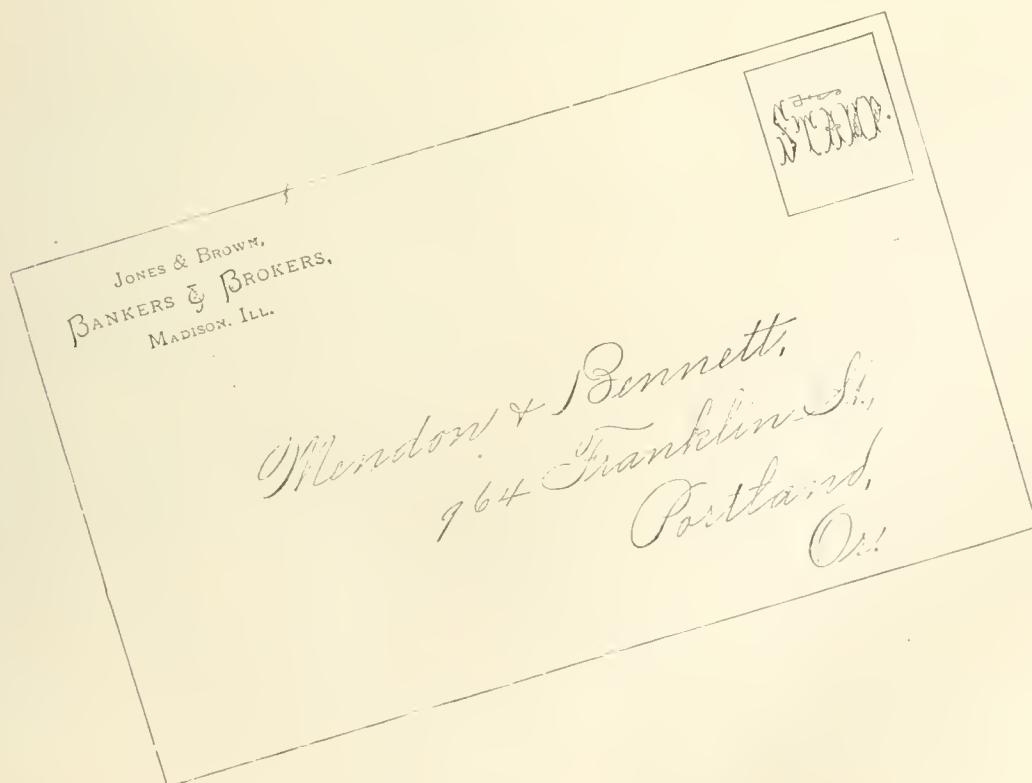 Jones & Brown,
Bankers & Brokers,
Madison, Ill.
Stamp.
Mendon & Bennett,
964 Franklin St.,
Portland,
Or.